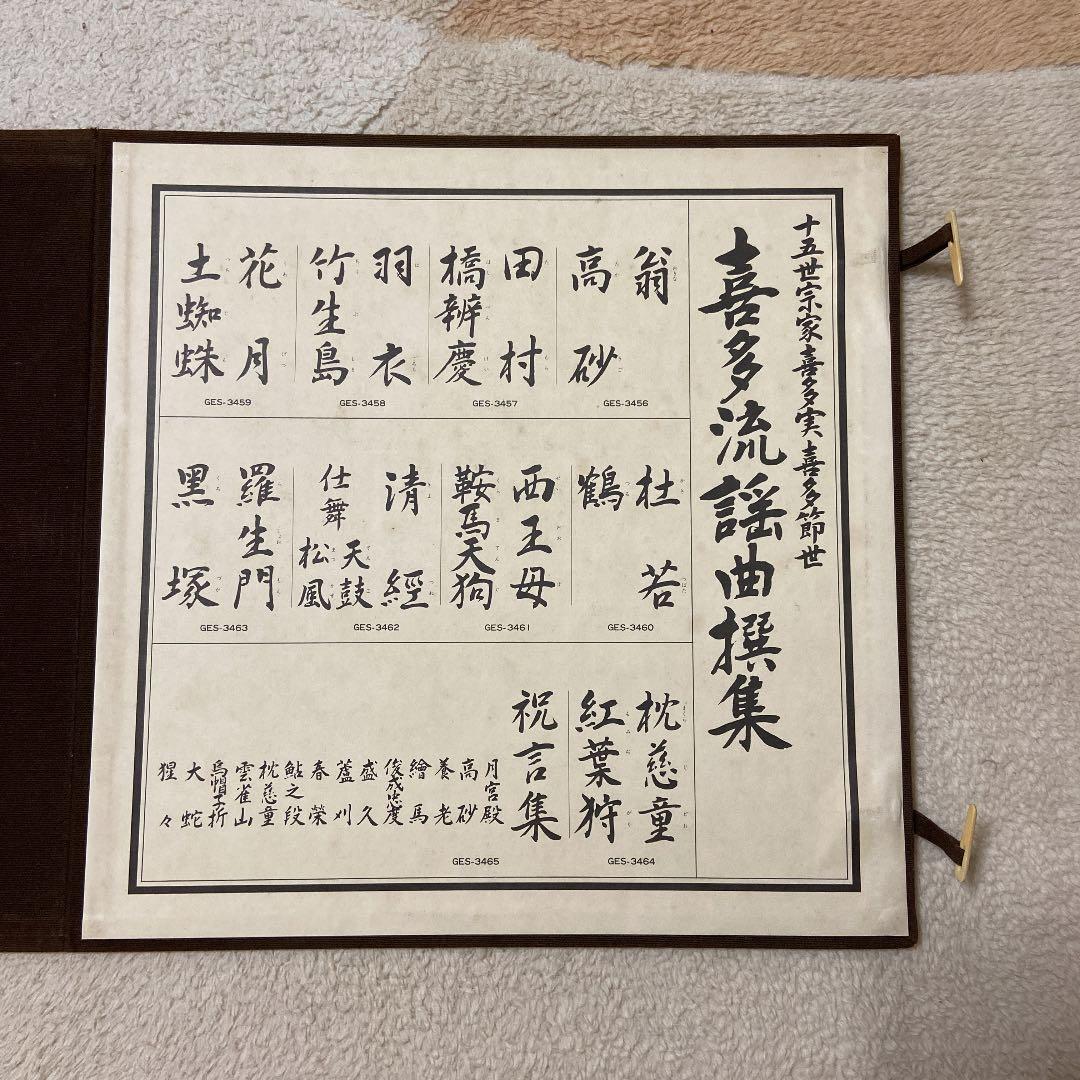 十五世宗家喜多実 喜多節世
喜多流謡曲撰集
翁
高砂
GES-3456
田村
橋辨慶
GES-3457
羽衣
竹生島
GES-3458
花月
土蜘蛛
GES-3459
杜若
鶴
GES-3460
西王母
鞍馬天狗
GES-3461
清經
仕舞
天鼓
松風
GES-3462
羅生門
黒塚
GES-3463
枕慈童
紅葉狩
GES-3464
祝言集
月宮殿
高砂
養老
繪馬
俊成忠度
盛久
蘆刈
春榮
鮎之段
枕慈童
雲雀山
烏帽子折
大蛇
猩々
GES-3465